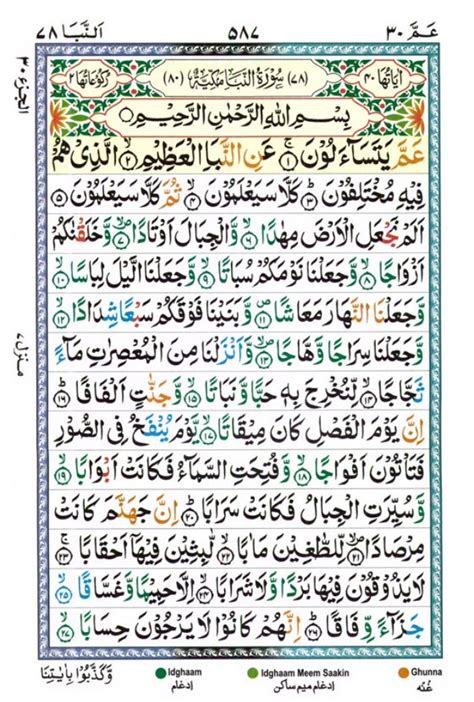 عَمَّ ٣٠ ٥٨٧ اَلنَّبَا ٧٨
اٰيَاتُهَا ٤٠ (٧٨) سُوْرَةُ النَّبَاِ مَكِّيَّةٌ (٨٠) رُكُوْعَاتُهَا ٢
بِسْمِ اللّٰهِ الرَّحْمٰنِ الرَّحِيْمِ
عَمَّ يَتَسَآءَلُوْنَ ۚ‏ ١ عَنِ النَّبَاِ الْعَظِيْمِ ۙ‏ ٢ الَّذِىْ هُمْ
فِيْهِ مُخْتَلِفُوْنَ ؕ‏ ٣ كَلَّا سَيَعْلَمُوْنَ ۙ‏ ٤ ثُمَّ كَلَّا سَيَعْلَمُوْنَ ٥
اَلَمْ نَجْعَلِ الْاَرْضَ مِهٰدًا ۙ‏ ٦ وَّالْجِبَالَ اَوْتَادًا ۙ‏ ٧ وَّخَلَقْنٰكُمْ
اَزْوَاجًا ۙ‏ ٨ وَّجَعَلْنَا نَوْمَكُمْ سُبَاتًا ۙ‏ ٩ وَّجَعَلْنَا الَّيْلَ لِبَاسًا ۙ‏ ١٠
وَّجَعَلْنَا النَّهَارَ مَعَاشًا ١١ وَّبَنَيْنَا فَوْقَكُمْ سَبْعًا شِدَادًا ۙ‏ ١٢
وَّجَعَلْنَا سِرَاجًا وَّهَّاجًا ١٣ وَّاَنْزَلْنَا مِنَ الْمُعْصِرٰتِ مَآءً
ثَجَّاجًا ۙ‏ ١٤ لِّنُخْرِجَ بِهٖ حَبًّا وَّنَبَاتًا ۙ‏ ١٥ وَّجَنّٰتٍ اَلْفَافًا ؕ‏ ١٦
اِنَّ يَوْمَ الْفَصْلِ كَانَ مِيْقَاتًا ۙ‏ ١٧ يَّوْمَ يُنْفَخُ فِى الصُّوْرِ
فَتَاْتُوْنَ اَفْوَاجًا ۙ‏ ١٨ وَّفُتِحَتِ السَّمَآءُ فَكَانَتْ اَبْوَابًا ۙ‏ ١٩
وَّسُيِّرَتِ الْجِبَالُ فَكَانَتْ سَرَابًا ؕ‏ ٢٠ اِنَّ جَهَنَّمَ كَانَتْ
مِرْصَادًا ۙ‏ ٢١ لِّلطّٰغِيْنَ مَاٰبًا ۙ‏ ٢٢ لّٰبِثِيْنَ فِيْهَاۤ اَحْقَابًا ۚ‏ ٢٣
لَا يَذُوْقُوْنَ فِيْهَا بَرْدًا وَّلَا شَرَابًا ۙ‏ ٢٤ اِلَّا حَمِيْمًا وَّغَسَّاقًا ۙ‏ ٢٥
جَزَآءً وِّفَاقًا ؕ‏ ٢٦ اِنَّهُمْ كَانُوْا لَا يَرْجُوْنَ حِسَابًا ۙ‏ ٢٧
وَّكَذَّبُوْا بِاٰيٰتِنَا
Idghaam اِدغام
Idghaam Meem Saakin اِدغام میم ساکن
Ghunna غُنّه
الجزء ٣٠
منزل ٧